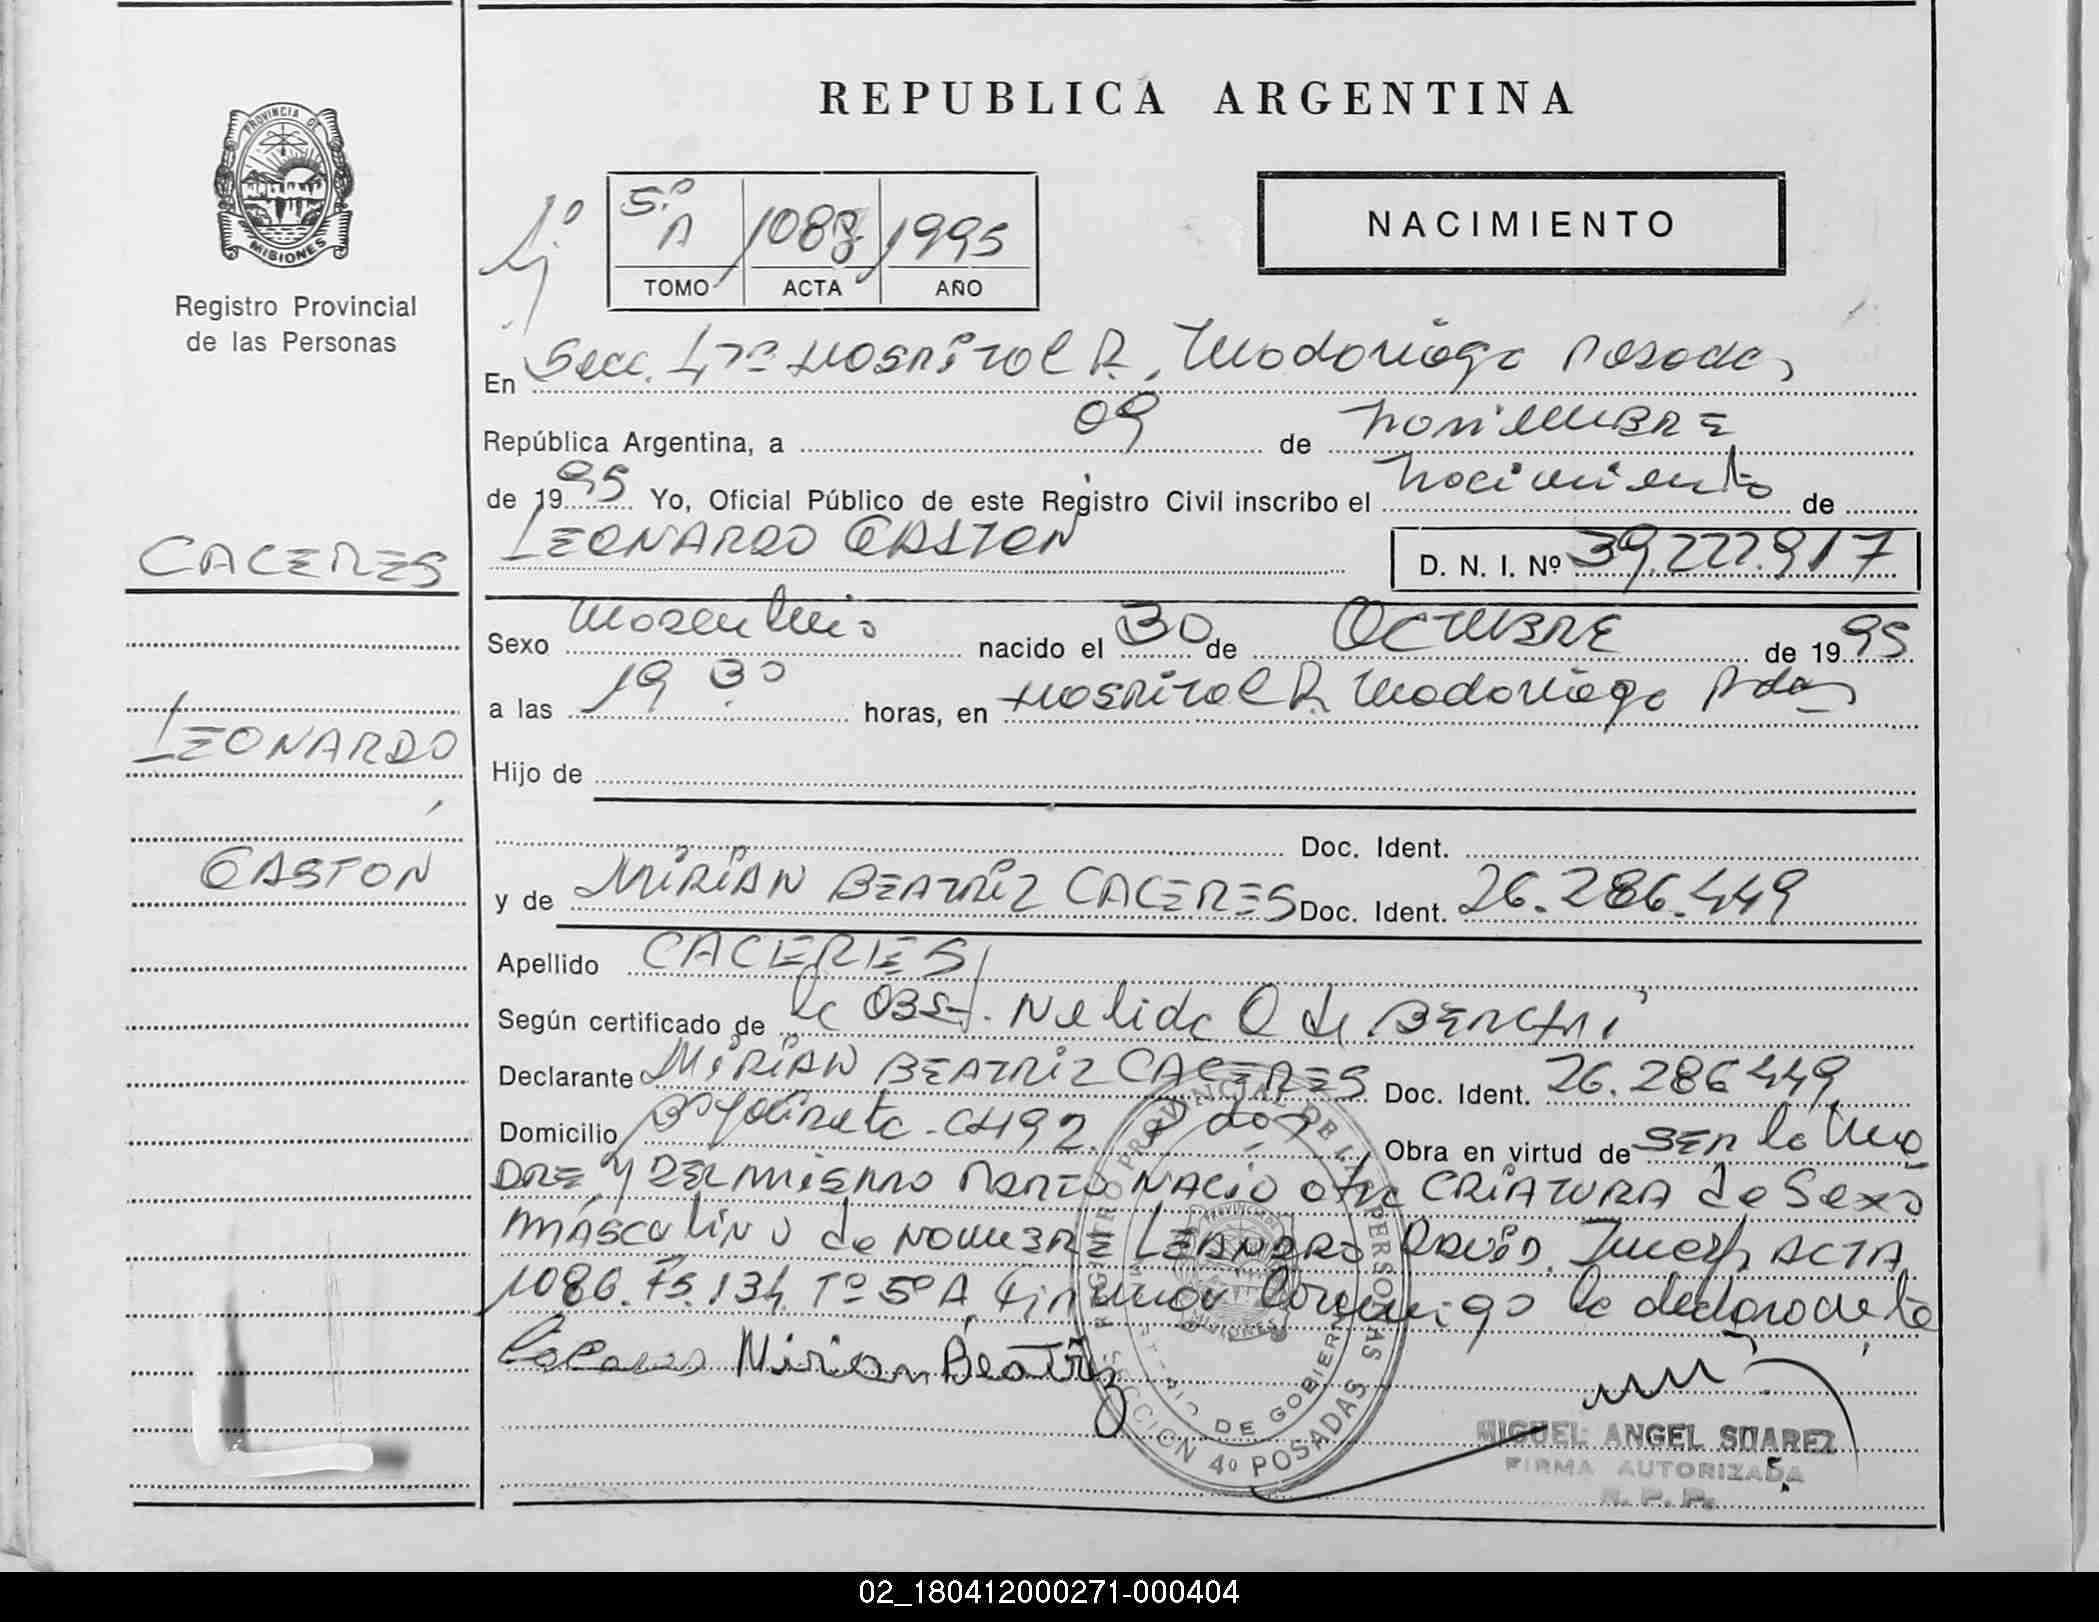 PROVINCIA DE
MISIONES
Registro Provincial
de las Personas
CACERES
LEONARDO
GASTON
REPUBLICA ARGENTINA
5º A 1088 1995
TOMO ACTA AÑO
NACIMIENTO
En Secc. 4ta Hospital R. Madariaga Posadas
República Argentina, a 09 de noviembre
de 1995 Yo, Oficial Público de este Registro Civil inscribo el nacimiento de
LEONARDO GASTON D. N. I. Nº 39.222.917
Sexo masculino nacido el 30 de OCTUBRE de 1995
a las 19 30 horas, en Hospital R. Madariaga Pdas
Hijo de
Doc. Ident.
y de MIRIAN BEATRIZ CACERES Doc. Ident. 26.286.449
Apellido CACERES
Según certificado de la OBST. Nelida O de
Declarante MIRIAN BEATRIZ CACERES Doc. Ident. 26.286.449
Domicilio Bº Yacireta - CH 92. Pdas Obra en virtud de SER la ma
DRE Y DEL MISMO PARTO NACIO otra CRIATURA de Sexo
masculino de NOMBRE LEANDRO DAVID. ACTA
1086. Fs. 134 Tº 5º A firman conmigo la declarante
Caceres Mirian Beatriz
REGISTRO PROVINCIAL DE LAS PERSONAS
DE GOBIERNO
SECCION 4º POSADAS
MIGUEL ANGEL SUAREZ
FIRMA AUTORIZADA
R. P. P.
02_180412000271-000404